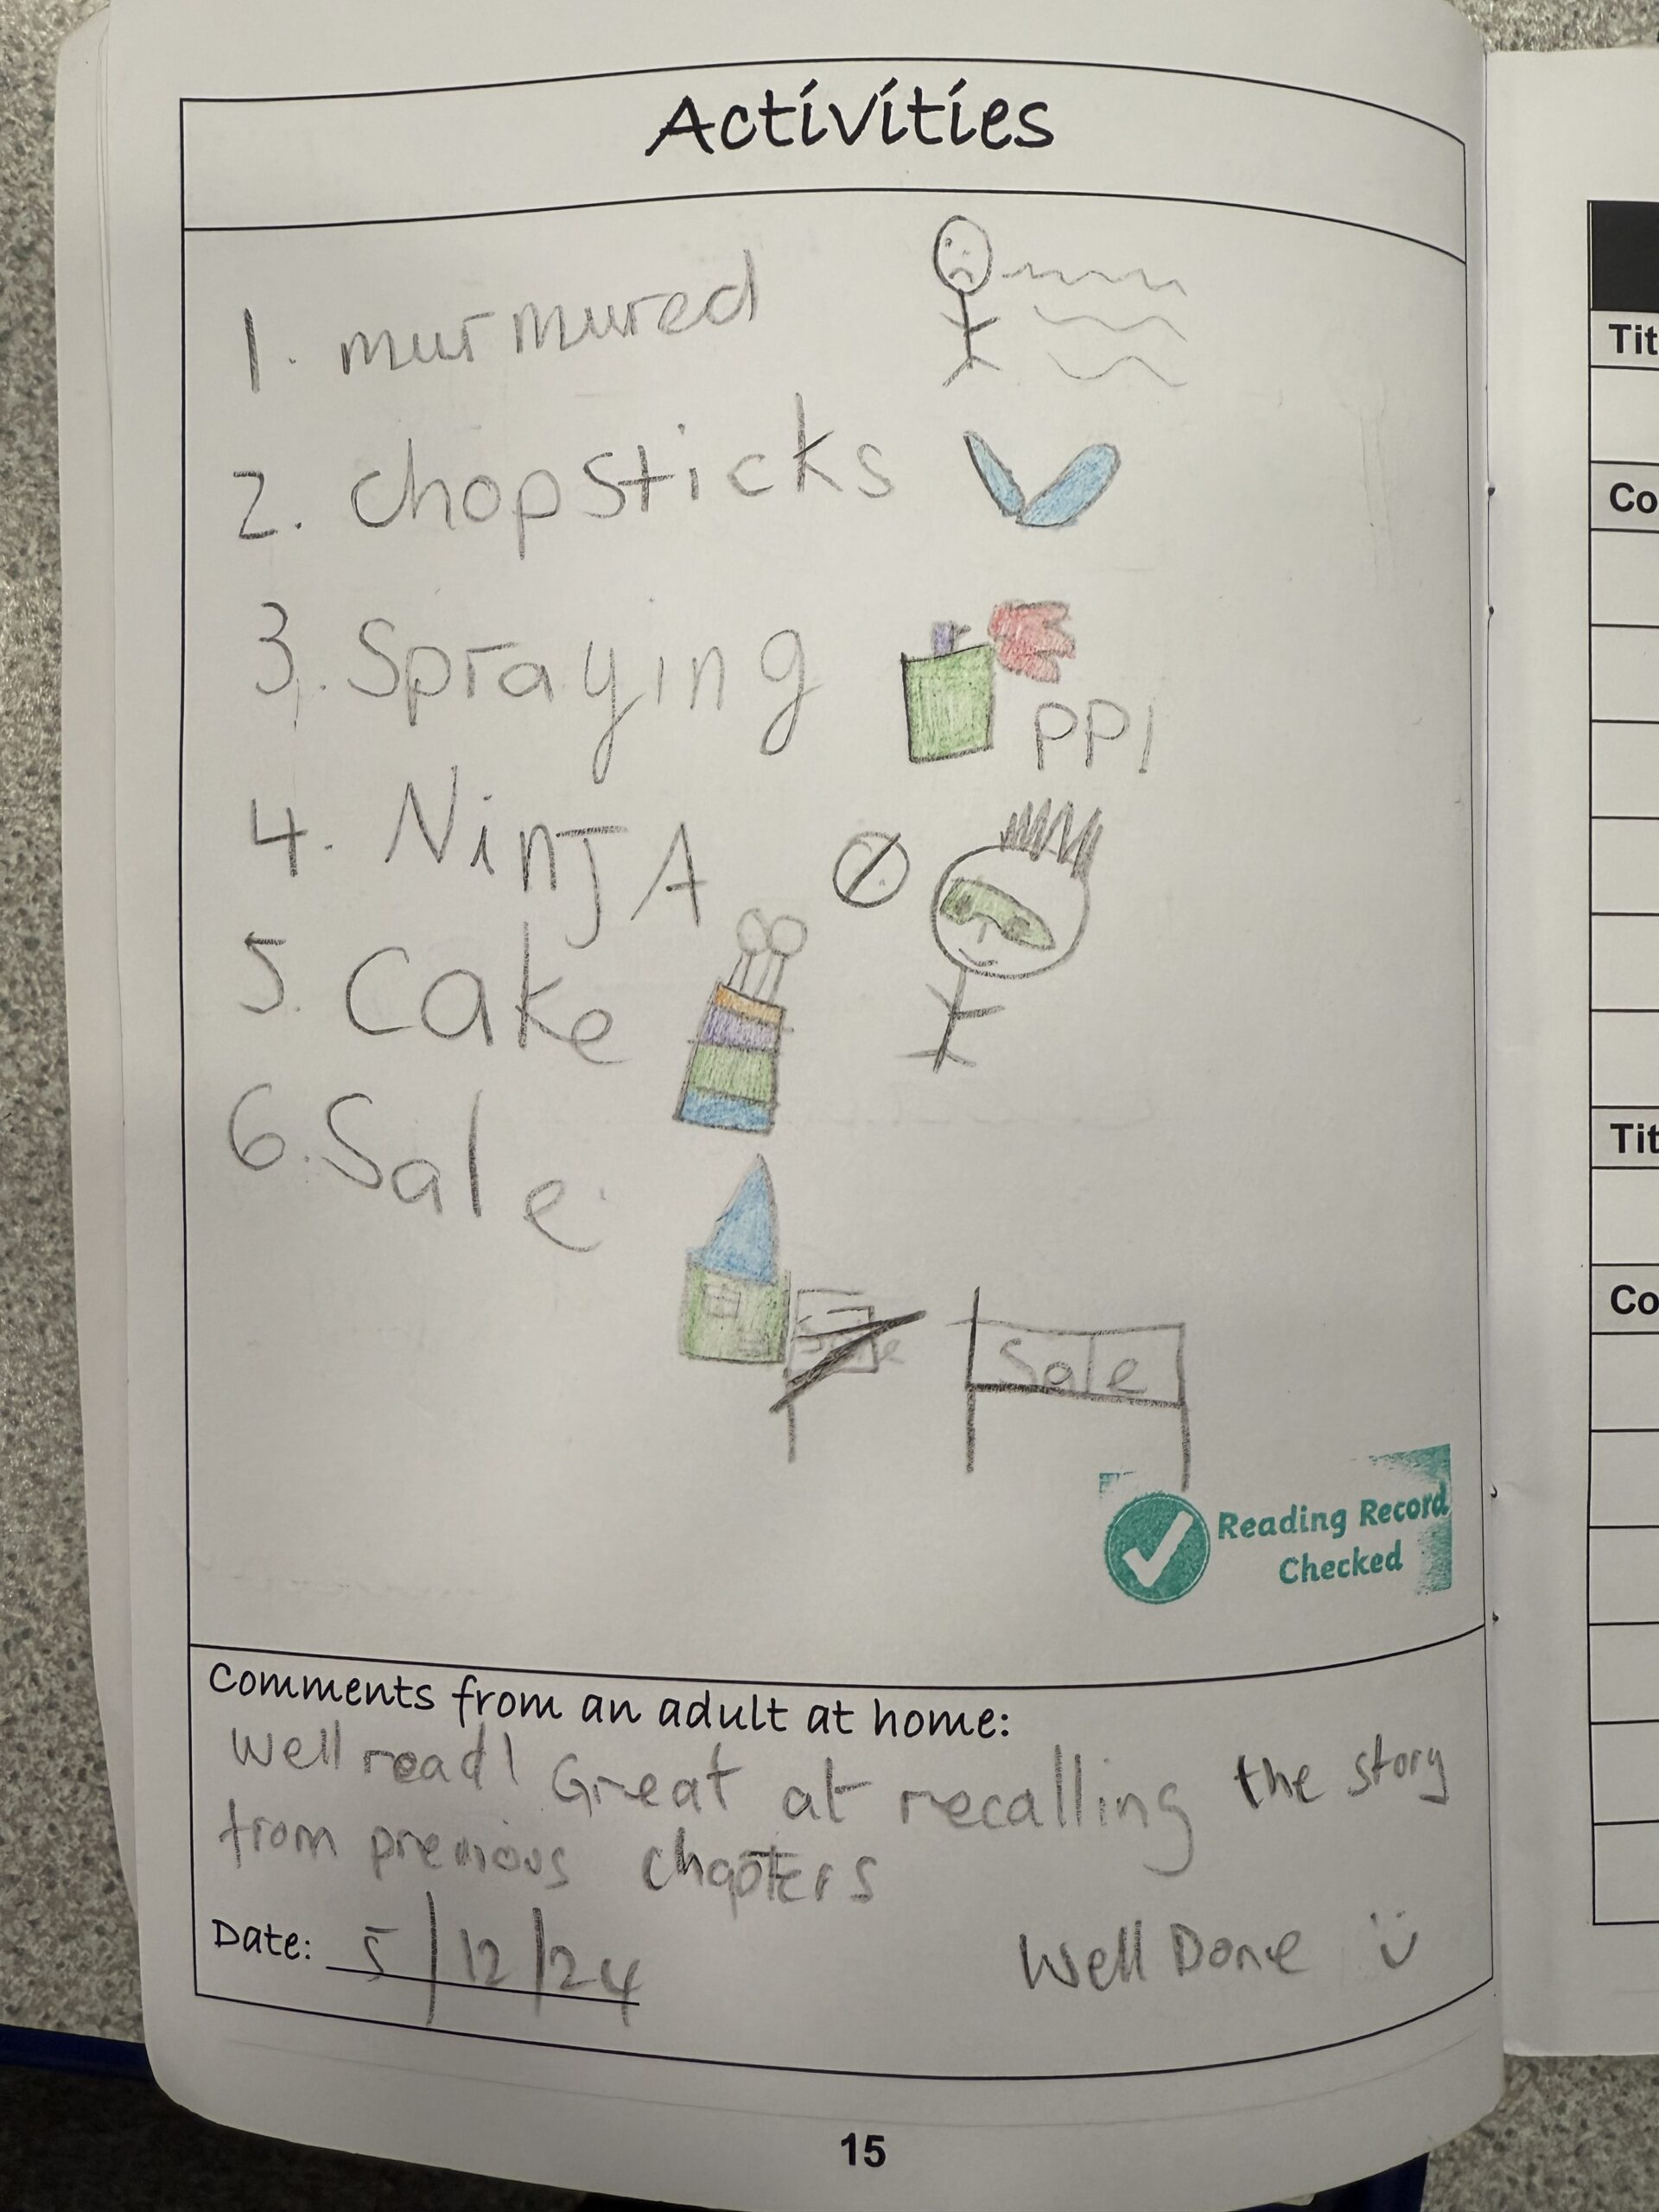 Activities
1. murmured
2. chopsticks
3. Spraying
PP!
4. NinJA
5. Cake
6. Sale
Sale
Reading Record
Checked
Comments from an adult at home:
Well read! Great at recalling the story
from previous chapters
Date: 5/12/24
Well Done
15
Tit
Co
Tit
Co